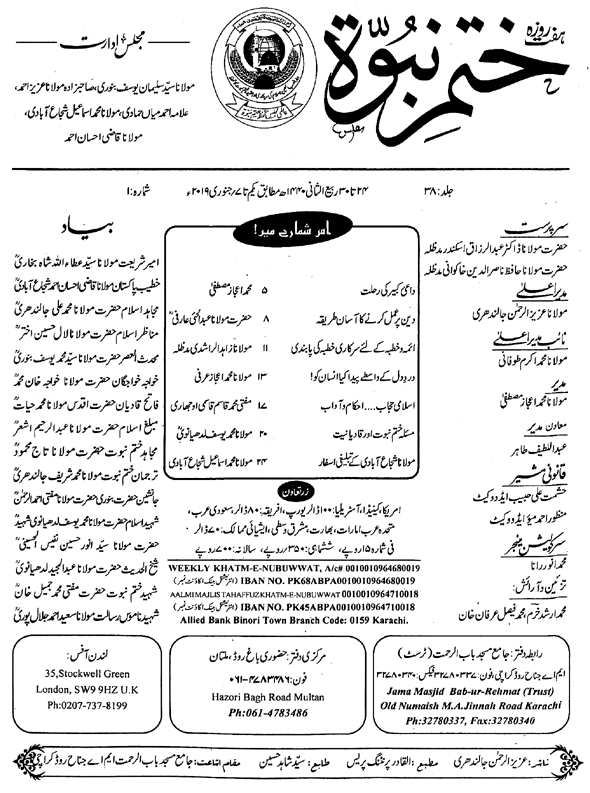 ہفت روزہ
ختم نبوۃ
مجلس ادارت
مولانا سید سلیمان یوسف بنوری، صاحبزادہ مولانا عزیز احمد،
علامہ احمد میاں حمادی، مولانا محمد اسماعیل شجاع آبادی،
مولانا قاضی احسان احمد
جلد: ۳۸
۲۴ تا ۳۰ ربیع الثانی ۱۴۴۰ھ مطابق یکم تا ۷ جنوری ۲۰۱۹ء
شمارہ: ۱
سرپرست
حضرت مولانا ڈاکٹر عبدالرزاق اسکندر مدظلہ
حضرت مولانا حافظ ناصر الدین خاکوانی مدظلہ
مدیر اعلیٰ
مولانا عزیز الرحمٰن جالندھری
نائب مدیر اعلیٰ
مولانا محمد اکرم طوفانی
مدیر
مولانا محمد اعجاز مصطفیٰ
معاون مدیر
عبداللطیف طاہر
قانونی مشیر
حشمت علی حبیب ایڈووکیٹ
منظور احمد میؤ ایڈووکیٹ
سرکولیشن منیجر
محمد انور رانا
تزئین و آرائش:
محمد ارشد خرم، محمد فیصل عرفان خان
اس شمارے میں!
داعی کبیر کی رحلت ۵ محمد اعجاز مصطفیٰ
دین پر عمل کرنے کا آسان طریقہ ۸ حضرت مولانا عبدالحئی عارفیؒ
ائمہ و خطبہ کے لئے سرکاری خطبہ کی پابندی ۱۱ مولانا زاہد الراشدی مدظلہ
درد دل کے واسطے پیدا کیا انسان کو! ۱۳ مولانا محمد اعجاز عرفی
اسلامی حجاب.... احکام و آداب ۱۷ مفتی محمد قاسم قاسمی اوجھاری
مسئلہ ختم نبوت اور قادیانیت ۲۰ مولانا محمد یوسف لدھیانویؒ
مولانا شجاع آبادی کے تبلیغی اسفار ۲۴ مولانا محمد اسماعیل شجاع آبادی
زرتعاون
امریکا، کینیڈا، آسٹریلیا: ۱۰۰ ڈالر یورپ، افریقہ: ۸۰ ڈالر، سعودی عرب،
متحدہ عرب امارات، بھارت، مشرق وسطیٰ، ایشیائی ممالک: ۷۰ ڈالر
فی شمارہ ۱۵ روپے، ششماہی: ۳۵۰ روپے، سالانہ: ۷۰۰ روپے
WEEKLY KHATM-E-NUBUWWAT, A/c# 0010010964680019
(انٹرنیشنل بینک اکاؤنٹ نمبر) IBAN NO. PK68ABPA0010010964680019
AALMI MAJLIS TAHAFFUZ KHATM-E-NUBUWWAT 0010010964710018
(انٹرنیشنل بینک اکاؤنٹ نمبر) IBAN NO. PK45ABPA0010010964710018
Allied Bank Binori Town Branch Code: 0159 Karachi.
بیاد
امیر شریعت مولانا سید عطاء اللہ شاہ بخاریؒ
خطیب پاکستان مولانا قاضی احسان احمد شجاع آبادیؒ
مجاہد اسلام حضرت مولانا محمد علی جالندھریؒ
مناظر اسلام حضرت مولانا لال حسین اخترؒ
محدث العصر حضرت مولانا سید محمد یوسف بنوریؒ
خواجہ خواجگان حضرت مولانا خواجہ خان محمدؒ
فاتح قادیان حضرت اقدس مولانا محمد حیاتؒ
مبلغ اسلام حضرت مولانا عبدالرحیم اشعرؒ
مجاہد ختم نبوت حضرت مولانا تاج محمودؒ
ترجمان ختم نبوت حضرت مولانا محمد شریف جالندھریؒ
جانشین حضرت بنوری حضرت مولانا مفتی احمد الرحمٰنؒ
شہید اسلام حضرت مولانا محمد یوسف لدھیانوی شہیدؒ
حضرت مولانا سید انور حسین نفیس الحسینیؒ
شیخ الحدیث حضرت مولانا عبدالمجید لدھیانویؒ
شہید ختم نبوت حضرت مولانا مفتی محمد جمیل خانؒ
شہید ناموس رسالت مولانا سعید احمد جلال پوریؒ
رابطہ دفتر: جامع مسجد باب الرحمت (ٹرسٹ)
ایم اے جناح روڈ کراچی، فون: ۳۲۷۸۰۳۳۷، فیکس: ۳۲۷۸۰۳۴۰
Jama Masjid Bab-ur-Rehmat (Trust)
Old Numaish M.A.Jinnah Road Karachi
Ph:32780337, Fax:32780340
مرکزی دفتر: حضوری باغ روڈ، ملتان
فون: ۰۶۱-۴۷۸۳۴۸۶
Hazori Bagh Road Multan
Ph:061-4783486
لندن آفس:
35,Stockwell Green
London, SW9 9HZ U.K
Ph:0207-737-8199
ناشر: عزیز الرحمٰن جالندھری مطبع: القادر پرنٹنگ پریس طابع: سید شاہد حسین مقام اشاعت: جامع مسجد باب الرحمت ایم اے جناح روڈ کراچی